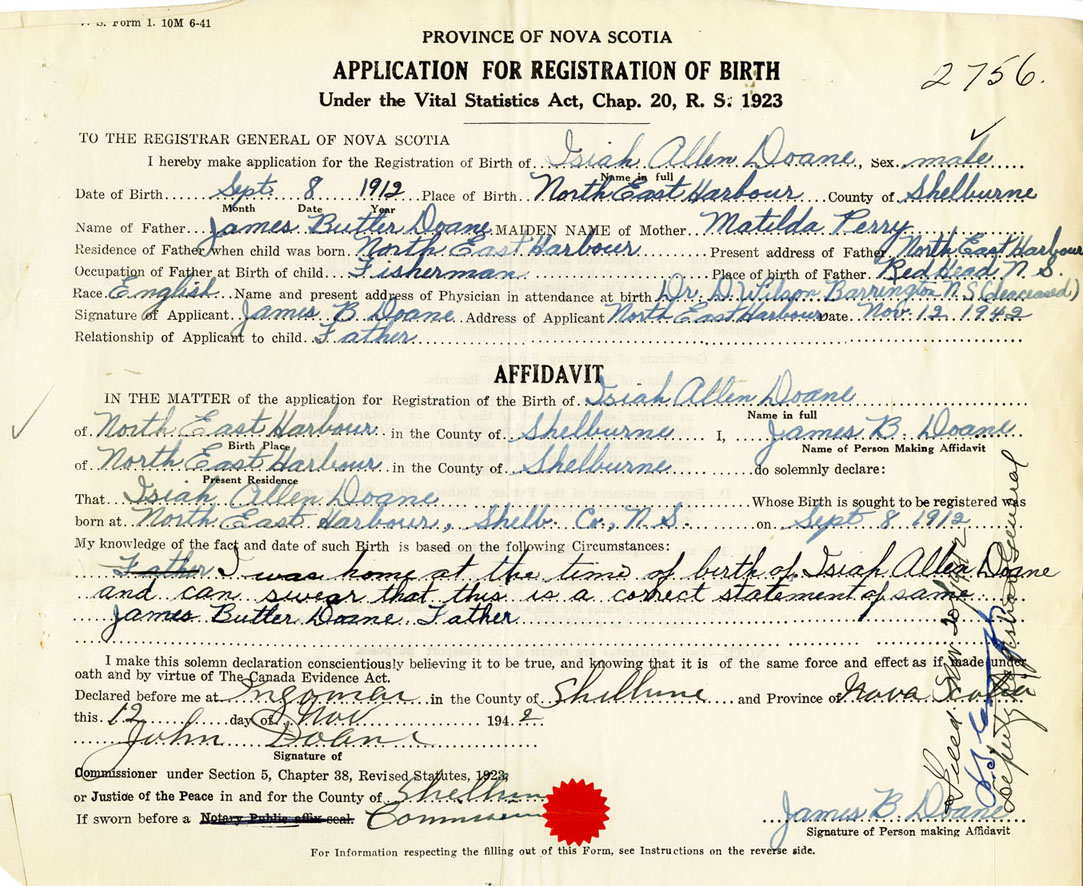 Form 1. 10M 6-41
PROVINCE OF NOVA SCOTIA
APPLICATION FOR REGISTRATION OF BIRTH
2756.
Under the Vital Statistics Act, Chap. 20, R. S. 1923
TO THE REGISTRAR GENERAL OF NOVA SCOTIA
I hereby make application for the Registration of Birth of Isiah Allen Doane, Sex male
Name in full
Date of Birth Sept 8 1912 Place of Birth North East Harbour County of Shelburne
Month Date Year
Name of Father James Butler Doane MAIDEN NAME of Mother Matilda Perry
Residence of Father when child was born North East Harbour Present address of Father North East Harbour
Occupation of Father at Birth of child Fisherman Place of birth of Father Red Head N.S.
Race English Name and present address of Physician in attendance at birth Dr. D Wilson Barrington N.S (deaceased)
Signature of Applicant James B Doane Address of Applicant North East Harbour Date Nov. 12 1942
Relationship of Applicant to child Father
AFFIDAVIT
IN THE MATTER of the application for Registration of the Birth of Isiah Allen Doane
Name in full
of North East Harbour in the County of Shelburne I, James B Doane
Birth Place Name of Person Making Affidavit
of North East Harbour in the County of Shelburne do solemnly declare:
Present Residence
That Isiah Allen Doane Whose Birth is sought to be registered was
born at North East Harbour, Shelb. Co., N.S. on Sept 8 1912
My knowledge of the fact and date of such Birth is based on the following Circumstances:
Father I was home at the time of birth of Isiah Allen Doane
and can swear that this is a correct statement of same
James Butler Doane Father
I make this solemn declaration conscientiously believing it to be true, and knowing that it is of the same force and effect as if made under
oath and by virtue of The Canada Evidence Act.
Declared before me at Ingomar in the County of Shelburne and Province of Nova Scotia
this 12 day of Nov 1942
John Doane
Signature of
Commissioner under Section 5, Chapter 38, Revised Statutes, 1923,
or Justice of the Peace in and for the County of Shelburne
If sworn before a Notary Public affix seal. Commissioner
James B Doane
Signature of Person making Affidavit
For Information respecting the filling out of this Form, see Instructions on the reverse side.
Deputy Registrar General